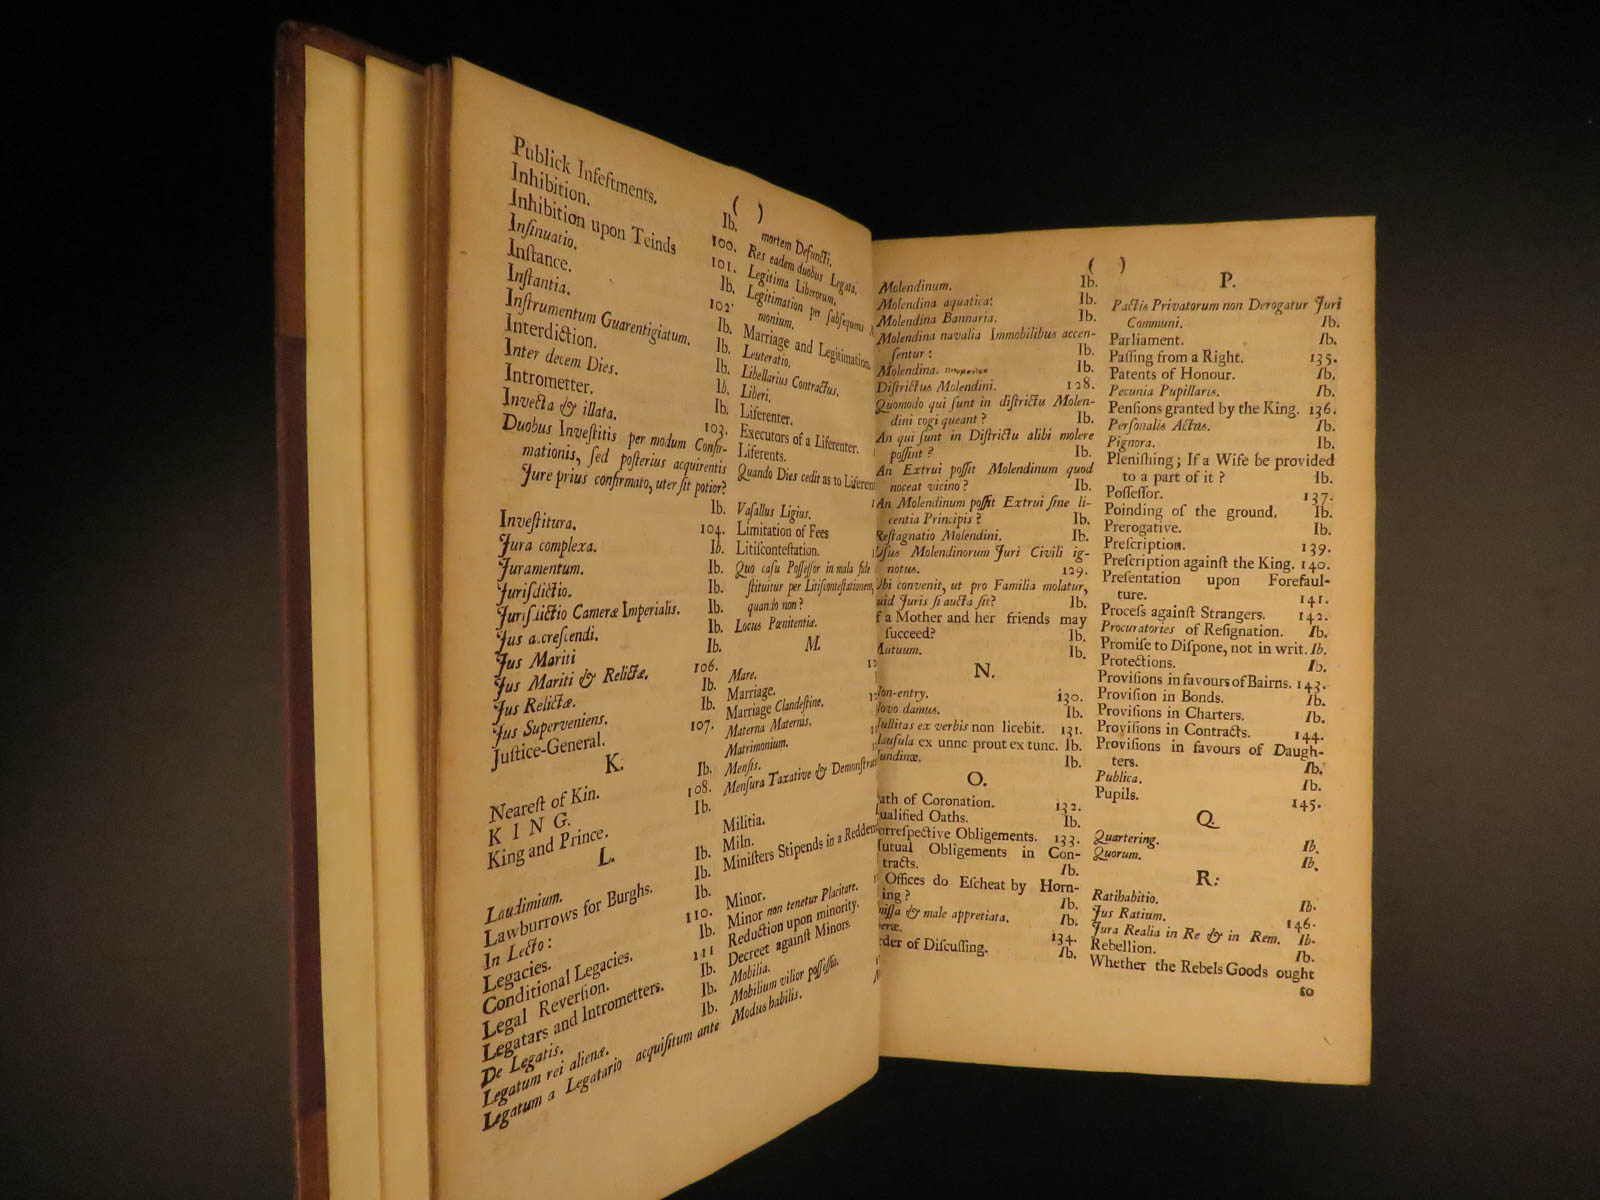 ( )
Publick Infeftments. Ib.
Inhibition. 100.
Inhibition upon Teinds 101.
Inſinuatio. Ib.
Inſtance. 102.
Inſtantia. Ib.
Inſtrumentum Guarentigiatum. Ib.
Interdiction. Ib.
Inter decem Dies. Ib.
Intrometter. Ib.
Invecta & illata. 103.
Duobus Inveſtitis per modum Confir-
mationis, ſed poſterius acquirentis
Jure prius confirmato, uter ſit potior?
Ib.
Inveſtitura. 104.
Jura complexa. Ib.
Juramentum. Ib.
Juriſdictio. Ib.
Juriſdictio Cameræ Imperialis. Ib.
Jus accreſcendi. Ib.
Jus Mariti Ib.
Jus Mariti & Relictæ. 106.
Jus Relictæ. Ib.
Jus Superveniens. Ib.
Juſtice-General. 107.
K.
Neareſt of Kin. Ib.
KING. 108.
King and Prince. Ib.
L.
Laudimium. Ib.
Lawburrows for Burghs. Ib.
In Lecto: Ib.
Legacies. 110.
Conditional Legacies. Ib.
Legal Reverſion. 111
Legatars and Intrometters. Ib.
De Legatis. Ib.
Legatum rei alienæ. Ib.
Legatum a Legatario acquiſitum ante
mortem Defuncti.
Res eadem duobus Legata.
Legitima Liberorum.
Legitimation per ſubſequens
monium.
Marriage and Legitimation.
Leuteratio.
Libellarius Contractus.
Liberi.
Liferenter.
Executors of a Liferenter.
Liferents.
Quando Dies cedit as to Liferent
Vaſallus Ligius.
Limitation of Fees
Litiſconteſtation.
Quo caſu Poſſeſſor in mala fide
ſtituitur per Litiſconteſtationem,
quando non?
Locus Pœnitentiæ.
M.
Mare.
Marriage.
Marriage Clandeſtine.
Materna Maternis.
Matrimonium.
Menſis.
Menſura Taxative & Demonſtrat
Militia.
Miln.
Miniſters Stipends in a Reddend
Minor.
Minor non tenetur Placitare.
Reduction upon minority.
Decreet againſt Minors.
Mobilia.
Mobilium vilior poſſeſſio.
Modus habilis.
( )
Molendinum. Ib.
Molendina aquatica: Ib.
Molendina Bannaria. Ib.
Molendina navalia Immobilibus accen-
ſentur: Ib.
Molendina. Ib.
Diſtrictus Molendini. 128.
Quomodo qui ſunt in diſtrictu Molen-
dini cogi queant? Ib.
An qui ſunt in Diſtrictu alibi molere
poſſint? Ib.
An Extrui poſſit Molendinum quod
noceat vicino? Ib.
An Molendinum poſſit Extrui ſine li-
centia Principis? Ib.
Reſtagnatio Molendini. Ib.
Uſus Molendinorum Juri Civili ig-
notus. 129.
Ubi convenit, ut pro Familia molatur,
quid Juris ſi aucta ſit? Ib.
If a Mother and her friends may
ſucceed? Ib.
Mutuum. Ib.
N.
Non-entry. 130.
Novo damus. Ib.
Nullitas ex verbis non licebit. 131.
Clauſula ex unnc prout ex tunc. Ib.
Nundinæ. Ib.
O.
Oath of Coronation. 132.
Qualified Oaths. Ib.
Correſpective Obligements. 133.
Mutual Obligements in Con-
tracts. Ib.
Offices do Eſcheat by Horn-
ing? Ib.
miſſa & male appretiata. Ib.
Operæ. 134.
Order of Diſcuſſing. Ib.
P.
Pactis Privatorum non Derogatur Juri
Communi. Ib.
Parliament. Ib.
Paſſing from a Right. 135.
Patents of Honour. Ib.
Pecunia Pupillaris. Ib.
Penſions granted by the King. 136.
Perſonalis Actus. Ib.
Pignora. Ib.
Pleniſhing; If a Wife be provided
to a part of it? Ib.
Poſſeſſor. 137.
Poinding of the ground. Ib.
Prerogative. Ib.
Preſcription. 139.
Preſcription againſt the King. 140.
Preſentation upon Forefaul-
ture. 141.
Proceſs againſt Strangers. 142.
Procuratories of Reſignation. Ib.
Promiſe to Diſpone, not in writ. Ib.
Protections. Ib.
Proviſions in favours of Bairns. 143.
Proviſion in Bonds. Ib.
Proviſions in Charters. Ib.
Proviſions in Contracts. 144.
Proviſions in favours of Daugh-
ters. Ib.
Publica. Ib.
Pupils. 145.
Q.
Quartering. Ib.
Quorum. Ib.
R:
Ratihabitio. Ib.
Jus Ratium. 146.
Jura Realia in Re & in Rem. Ib.
Rebellion. Ib.
Whether the Rebels Goods ought
to